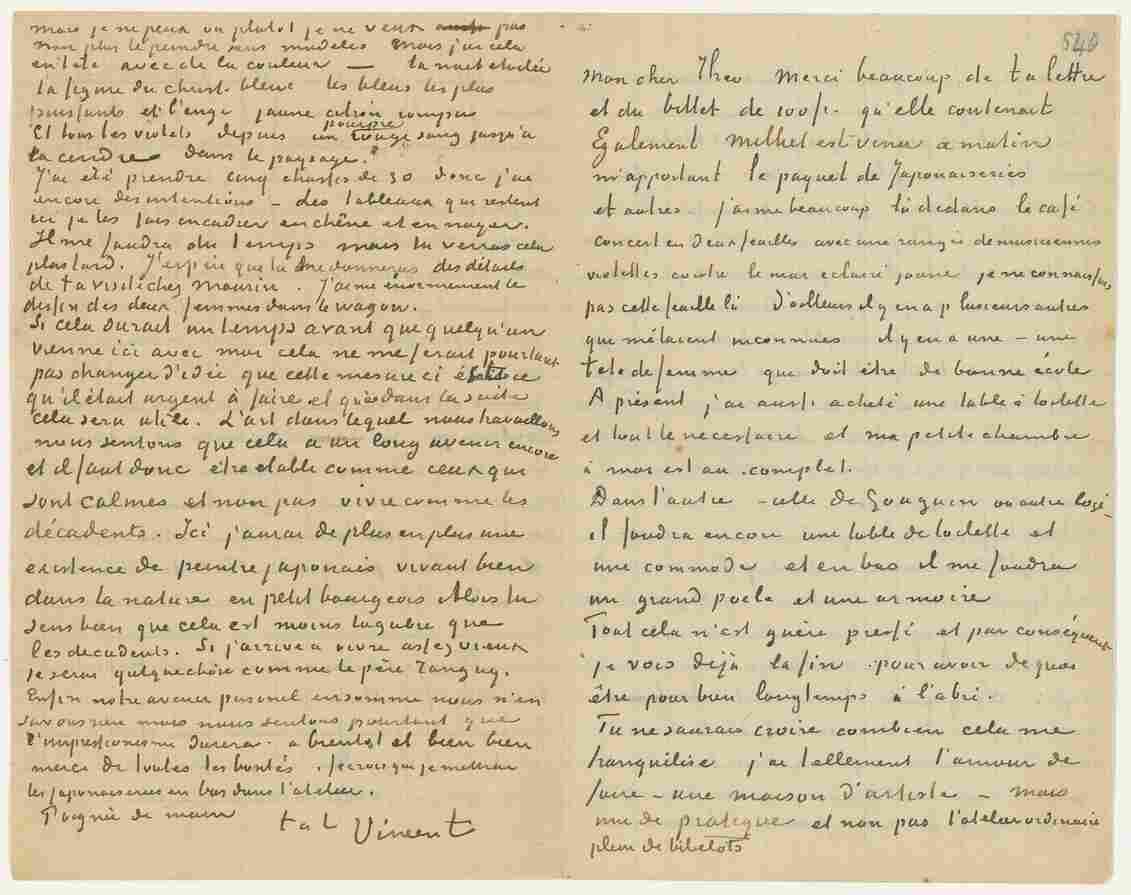 mais je ne peux ou plutot je ne veux aussi pas
non plus le peindre sans modèles mais j'ai cela
en tête avec de la couleur — la nuit etoilée
la figure du Christ bleue les bleus les plus
puissants et l'ange jaune citron rompu
Et tous les violets depuis un pourpre rouge sang jusqu'à
la cendre dans le paysage.
J'ai été prendre cinq chassis de 30 donc j'ai
encore des intentions – Les tableaux qui restent
ici je les fais encadrer en chêne et en noyer.
Il me faudra du temps mais tu verras cela
plus tard. J'espère que tu me donneras des détails
de ta visite chez Maurin. J'aime énormement le
dessin des deux femmes dans le wagon.
Si cela durait un temps avant que quelqu'un
vienne ici avec moi cela ne me ferait pourtant
pas changer d'idée que cette mesure ci
qu'il était urgent à faire et que dans la suite
cela sera utile. L'art dans lequel nous travaillons
nous sentons que cela a un long avenir encore
et il faut donc être etabli comme ceux qui
sont calmes et non pas vivre comme les
décadents. Ici j'aurai de plus en plus une
existence de peintre japonais vivant bien
dans la nature en petit bourgeois Alors tu
sens bien que cela est moins lugubre que
les decadents. Si j'arrive a vivre assez vieux
je serai quelque chôse comme le père Tanguy.
Enfin notre avenir personel en somme nous n'en
savons rien mais nous sentons pourtant que
l'impressionisme durera. a bientot et bien bien
merci de toutes tes bontés. je crois que je mettrai
les japonaiseries en bas dans l'atelier.
Poignée de main t à t Vincent
540
Mon cher Theo Merci beaucoup de ta lettre
et du billet de 100 fr. qu'elle contenait
Egalement Milliet est venu ce matin
m'apportant le paquet de Japonaiseries
et autres. j'aime beaucoup là dedans le café
concert en deux feuilles avec une rangée de musiciennes
violettes contre le mur eclairé jaune je ne connaissais
pas cette feuille là D'ailleurs il y en a plusieurs autres
qui m'étaient inconnues il y en a une – une
tête de femme qui doit être de bonne école
A présent j'ai aussi acheté une table à toilette
et tout le necessaire et ma petite chambre
à moi est au complet.
Dans l'autre – celle de Gauguin ou autre logé –
il faudra encore une table de toilette et
une commode et en bas il me faudra
un grand poele et une armoire
Tout cela n'est guère pressé et par conséquent
je vois déjà la fin pour avoir de quoi
être pour bien longtemps à l'abri.
Tu ne saurais croire combien cela me
tranquilise j'ai tellement l'amour de
faire – une maison d'artiste – mais
une de pratique et non pas l'atelier ordinaire
plein de bibelots